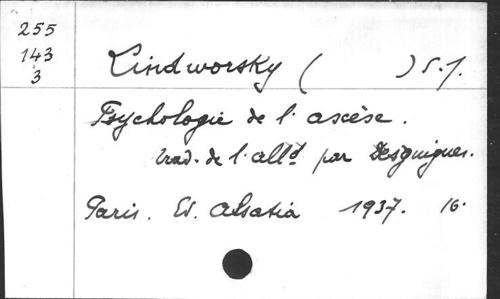 255
143
3
Lindworsky ( ) S.J.
Psychologie de l'ascèse.
trad. de l'alld par Desguigues.
Paris. Ed. Alsatia 1937. 16.